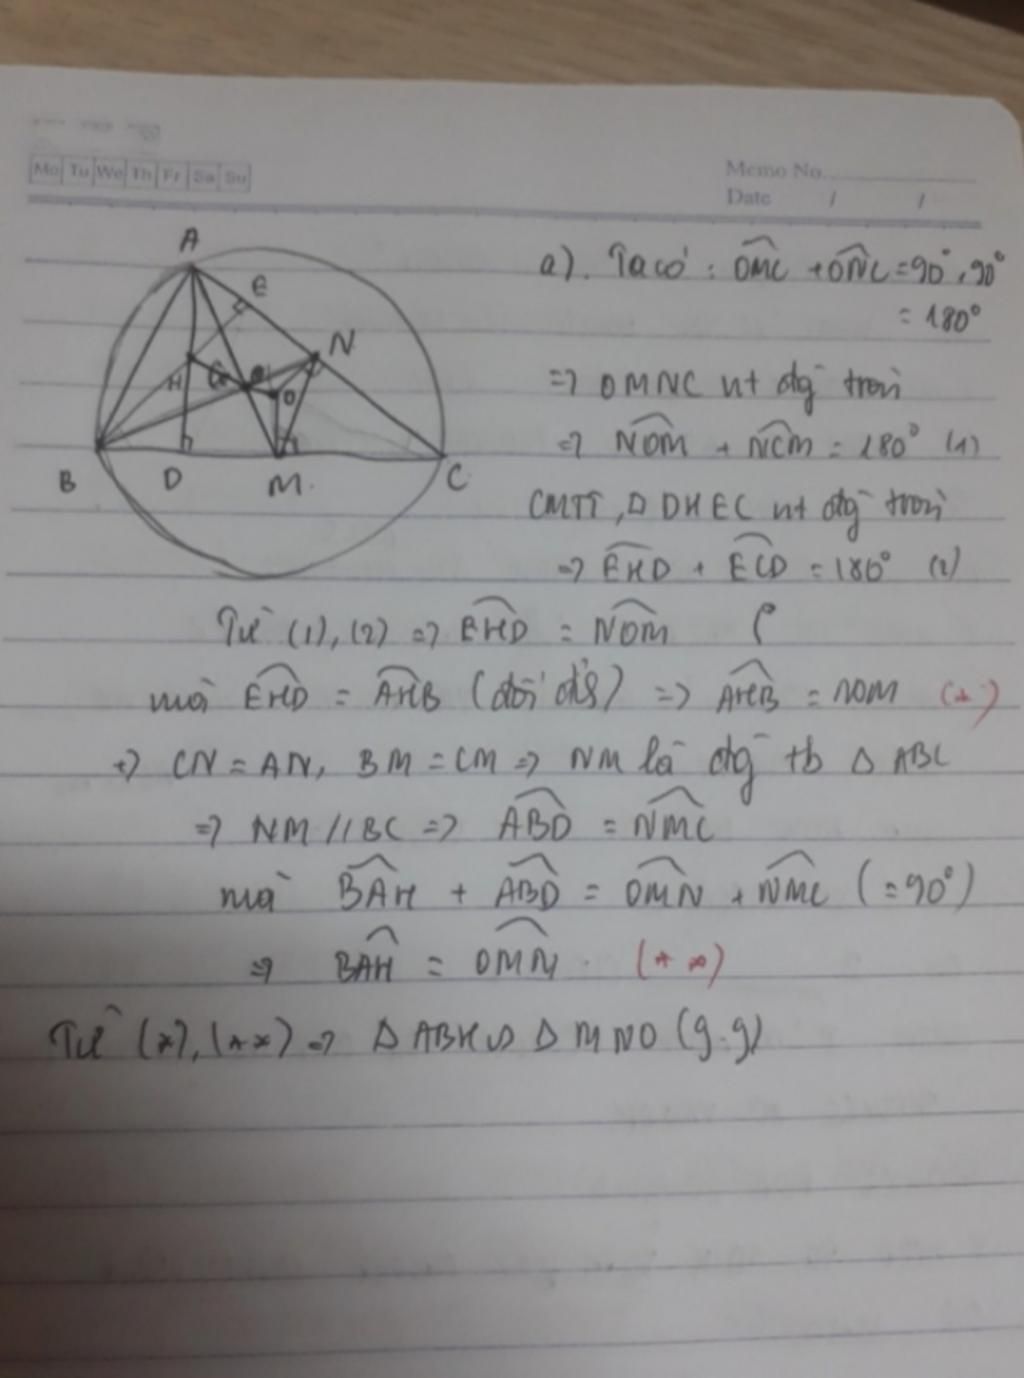 Mo Tu We Th Fr Sa Su
Memo No.
Date / /
A
E
N
H
G
O
B
D
M.
C
a). Ta có : OMC + ONC = 90°, 90°
= 180°
=> OMNC nt đtg tròn
=> NOM + NCM = 180° (1)
CMTT, Δ DHEC nt đtg tròn
=> EHD + ECD = 180° (2)
Từ (1), (2) => EHD = NOM
mà EHD = AHB (đối đ) => AHB = NOM (*)
+) CN = AN, BM = CM => NM là đtg tb Δ ABC
=> NM // BC => ABD = NMC
mà BAH + ABD = OMN + NMC (= 90°)
=> BAH = OMN. (**)
Từ (*), (**) => Δ ABH ∽ Δ MNO (g.g)